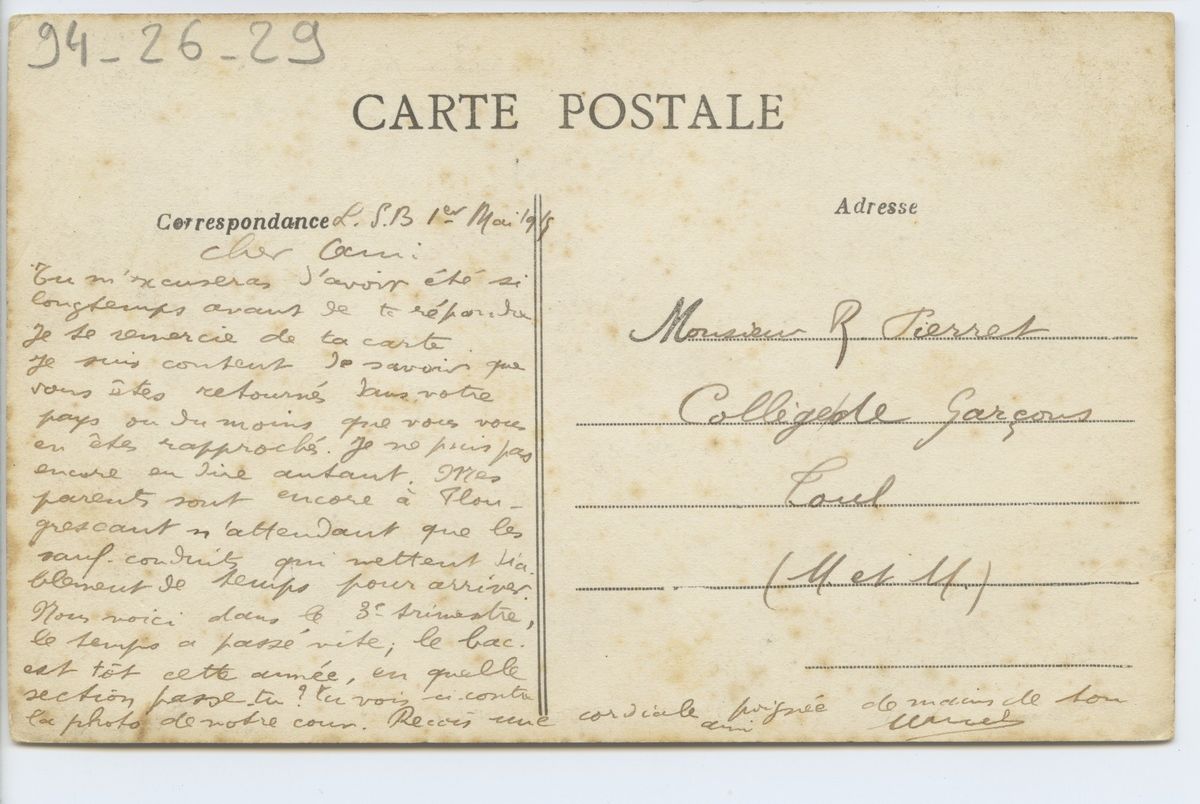 94-26-29
CARTE POSTALE
Correspondance L. S.B 1er Mai 1915
Cher Ami
Tu m'excuseras d'avoir été si
longtemps avant de te répondre
Je te remercie de ta carte
Je suis content de savoir que
vous êtes retournés dans votre
pays ou du moins que vous vous
en êtes rapproché. Je ne puis pas
encore en dire autant. Mes
parents sont encore à Plou-
grescant n'attendant que les
sauf-conduits qui mettent dia-
blement de temps pour arriver.
Nous voici dans le 3e trimestre,
le temps a passé vite; le bac.
est tôt cette année, en quelle
section passe-tu? Tu vois ci contre
la photo de notre cour. Reçois une cordiale poignée de mains de ton
ami Marcel
Adresse
Monsieur R Pierret
Collège de Garçons
Toul
(M. et M.)